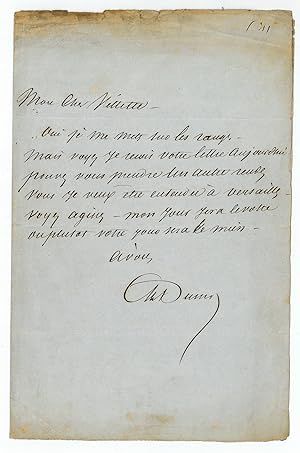 Mon cher Villette –
Oui je me mets sur les rangs –
Mais voyez je reçois votre lettre Aujourdhui
pouvez vous prendre un autre rendez
vous Je veux être entendu à versailles
voyez agissez – mon jour sera le votre
ou plutot votre jour sera le mien –
a vous
Al Dumas